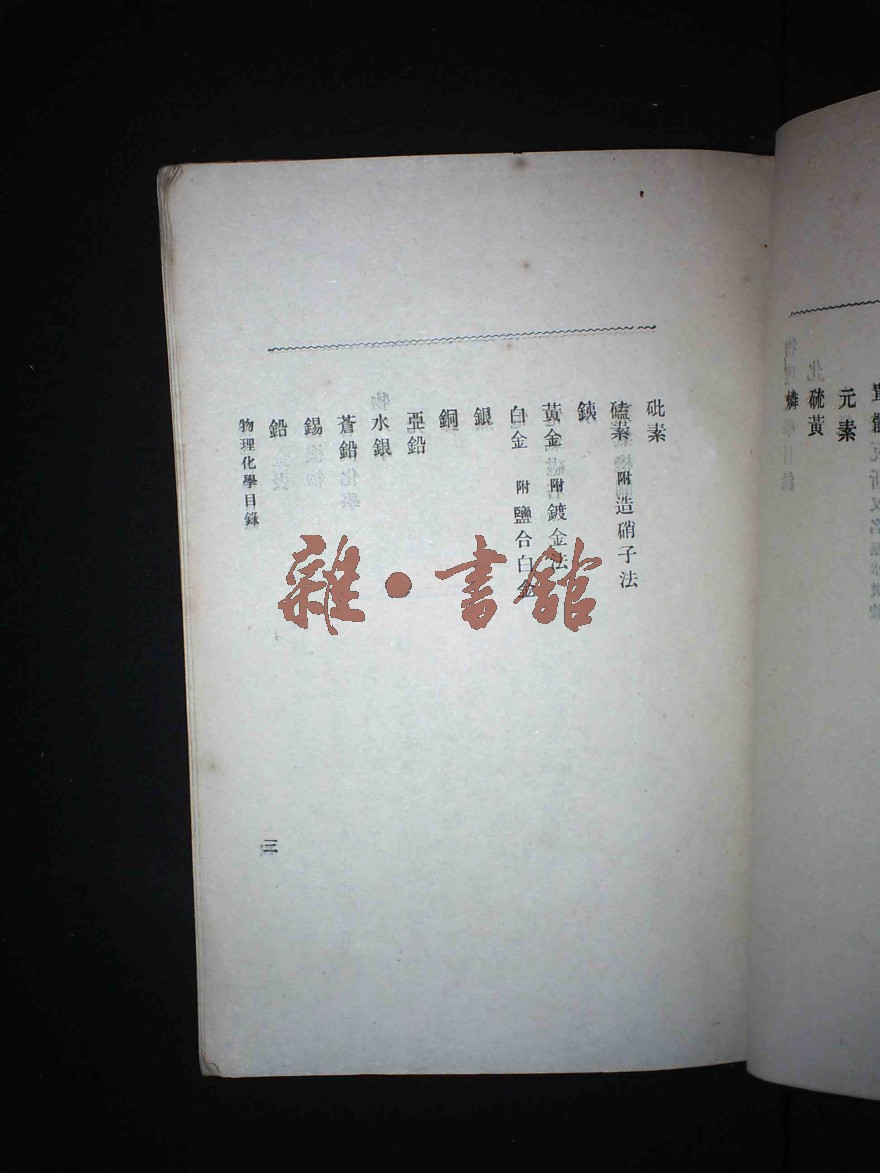 元素
硫黃
燐
砒素
磠素 附造硝子法
銕
黃金 附鍍金法
白金 附鹽合白金
銀
銅
亞鉛
水銀
蒼鉛
錫
鉛
物理化學目錄
三
雜·書館